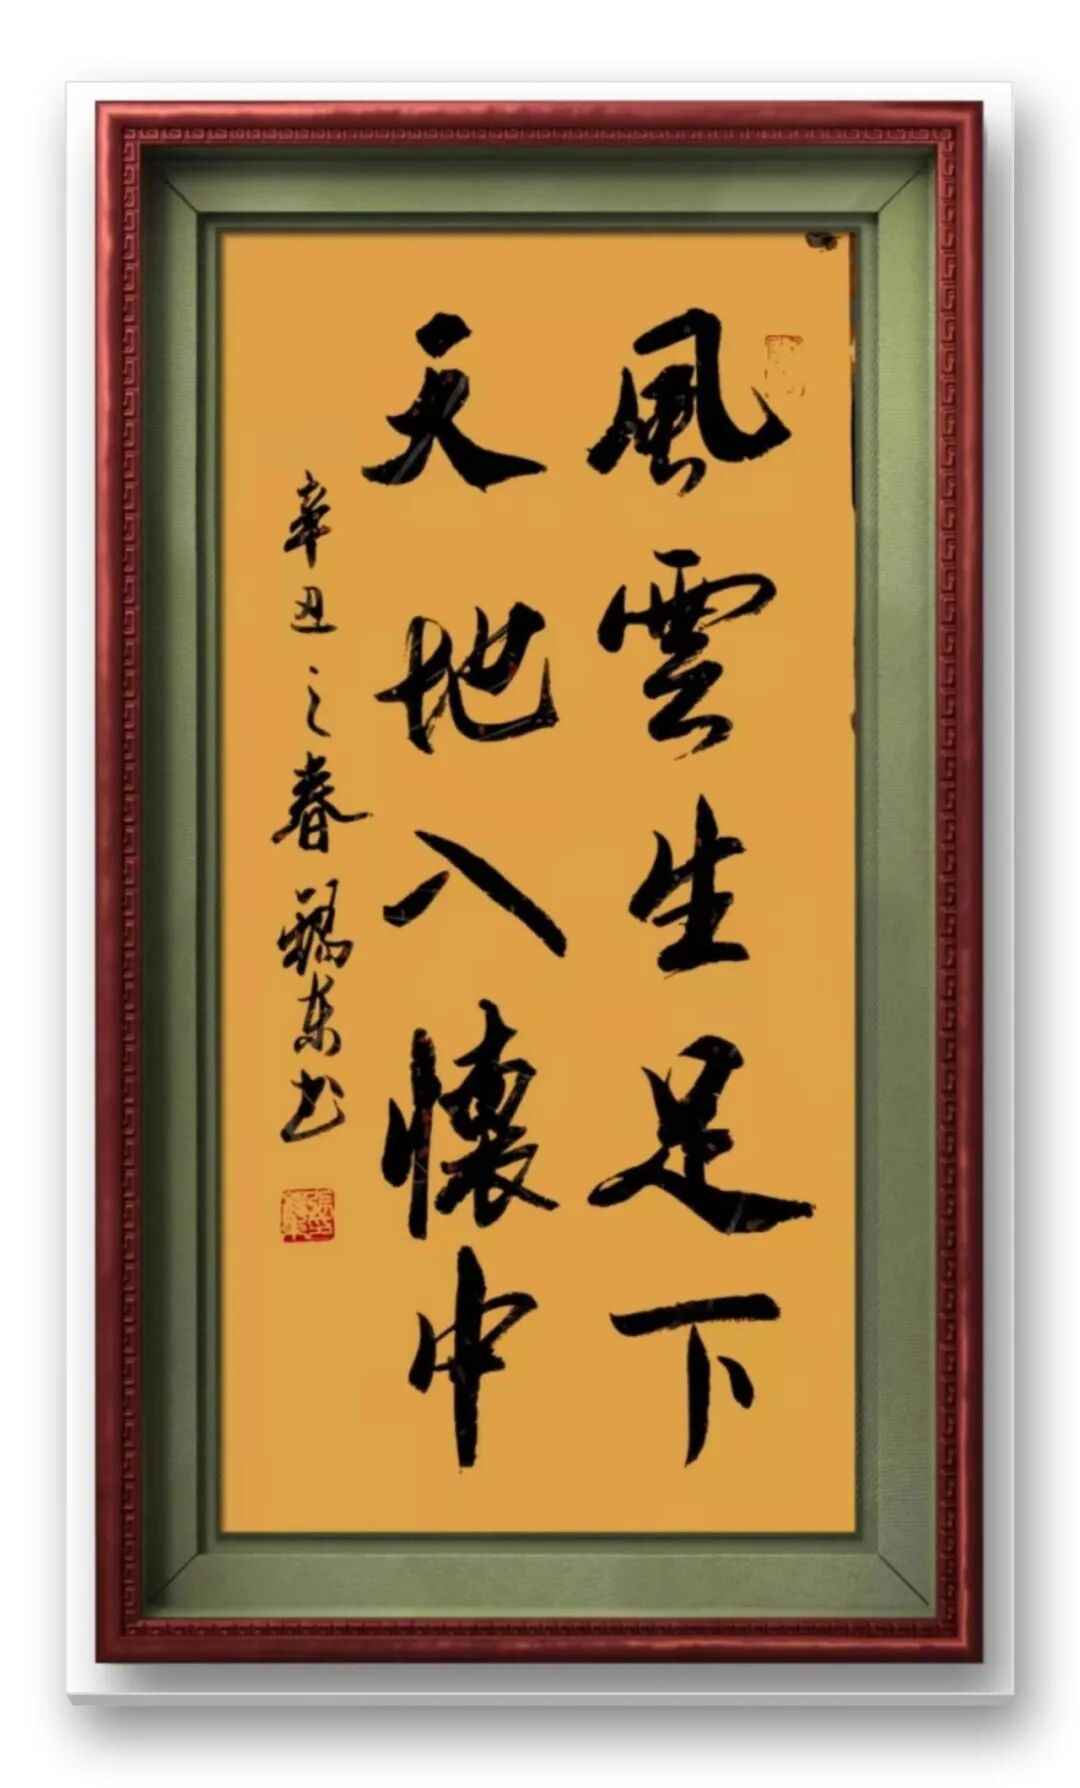 風雲生足下
天地入懷中
辛丑之春 東书